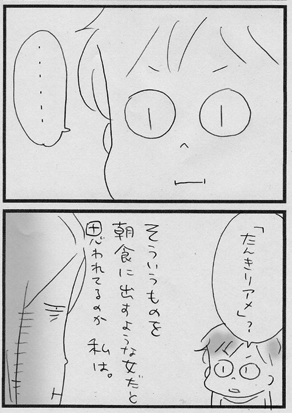 ・・・・・・
「たんきりアメ」？
そういうものを
朝食に出すような女だと
思われてるのか 私は。